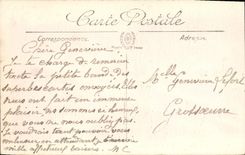 Carte Postale
Correspondance
Adresse
Chère Geneviève
Je te charge de remercier
toute la petite bande des
superbes cartes envoyées elles
nous ont fait en immense
plaisir, nous sommes si heureux
que vous ne nous oubliez pas.
Je voudrais tant pouvoir vous
embrasser en attendant
mille affectueux baisers. M.C
Melle Geneviève Lefort